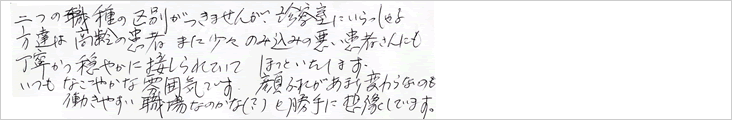 二つの職種の区別がつきませんが、診察室にいらっしゃる
方達は高齢の患者 また少々のみ込みの悪い患者さんにも
丁寧かつ穏やかに接しられていて ほっといたします。
いつもなごやかな雰囲気です。 顔ぶれがあまり変わらないのも
働きやすい職場なのかな(?)と勝手に想像しています。